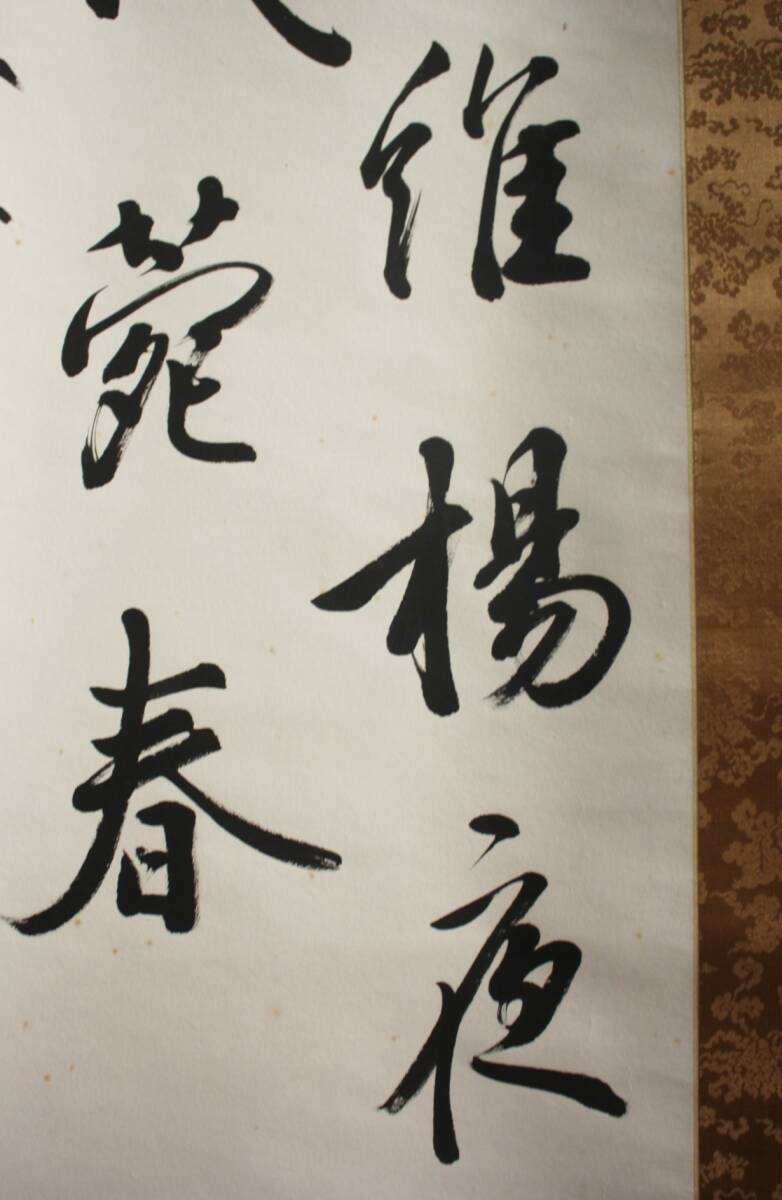 維楊夜
薨春